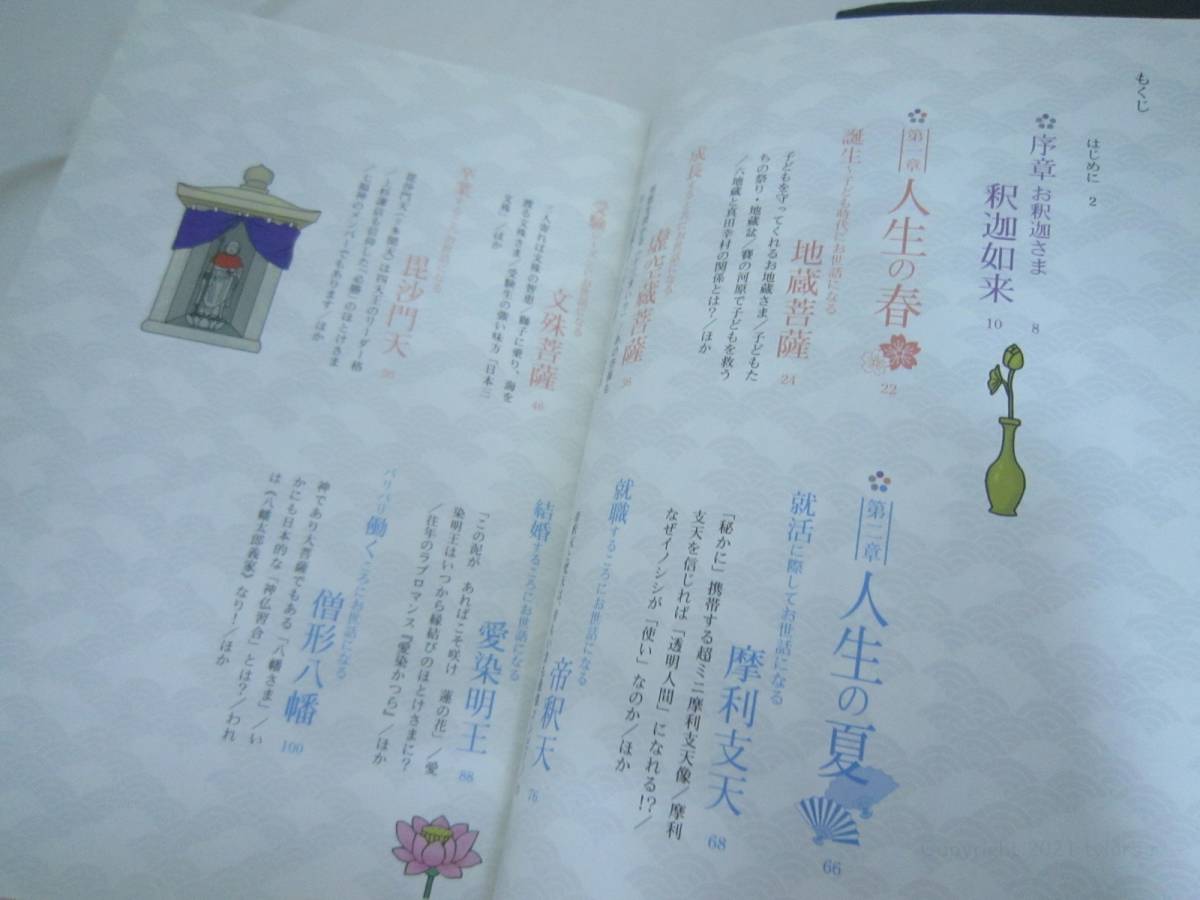 もくじ
はじめに 2
序章 お釈迦さま 8
釈迦如来 10
第一章 人生の春 22
誕生〜子ども時代にお世話になる
地蔵菩薩 24
子どもを守ってくれるお地蔵さま／子どもた
ちの祭り・地蔵盆／賽の河原で子どもを救う
／六地蔵と真田幸村の関係とは？／ほか
成長するころにお世話になる
虚空蔵菩薩 36
受験
文殊菩薩 46
三人寄れば文殊の智恵／獅子に乗り、海を
渡る文殊さま／受験生の強い味方「日本三
文殊」／ほか
卒業するころにお世話になる
毘沙門天 56
毘沙門天（＝多聞天）は四天王のリーダー格
／上杉謙信も信仰した「必勝」のほとけさま
／七福神のメンバーでもあります／ほか
第二章 人生の夏 66
就活に際してお世話になる
摩利支天 68
「秘かに」携帯する超ミニ摩利支天像／摩利
支天を信じれば「透明人間」になれる!?／
なぜイノシシが「使い」なのか／ほか
就職するころにお世話になる
帝釈天 76
結婚するころにお世話になる
愛染明王 88
「この泥が あればこそ咲け 蓮の花」／愛
染明王はいつから縁結びのほとけさまに？
／往年のラブロマンス『愛染かつら』／ほか
バリバリ働くころにお世話になる
僧形八幡 100
神であり大菩薩でもある「八幡さま」／い
かにも日本的な「神仏習合」とは？／われ
は《八幡太郎義家》なり！／ほか
Copyright 2021